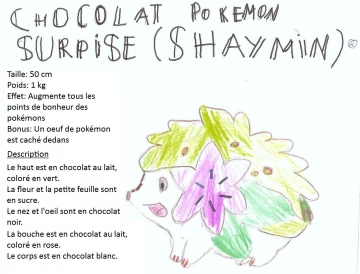 CHOCOLAT POKEMON
SURPISE (SHAYMIN)
Taille: 50 cm
Poids: 1 kg
Effet: Augmente tous les
points de bonheur des
pokémons
Bonus: Un oeuf de pokémon
est caché dedans
Description
Le haut est en chocolat au lait,
coloré en vert.
La fleur et la petite feuille sont
en sucre.
Le nez et l'oeil sont en chocolat
noir.
La bouche est en chocolat au lait,
coloré en rose.
Le corps est en chocolat blanc.